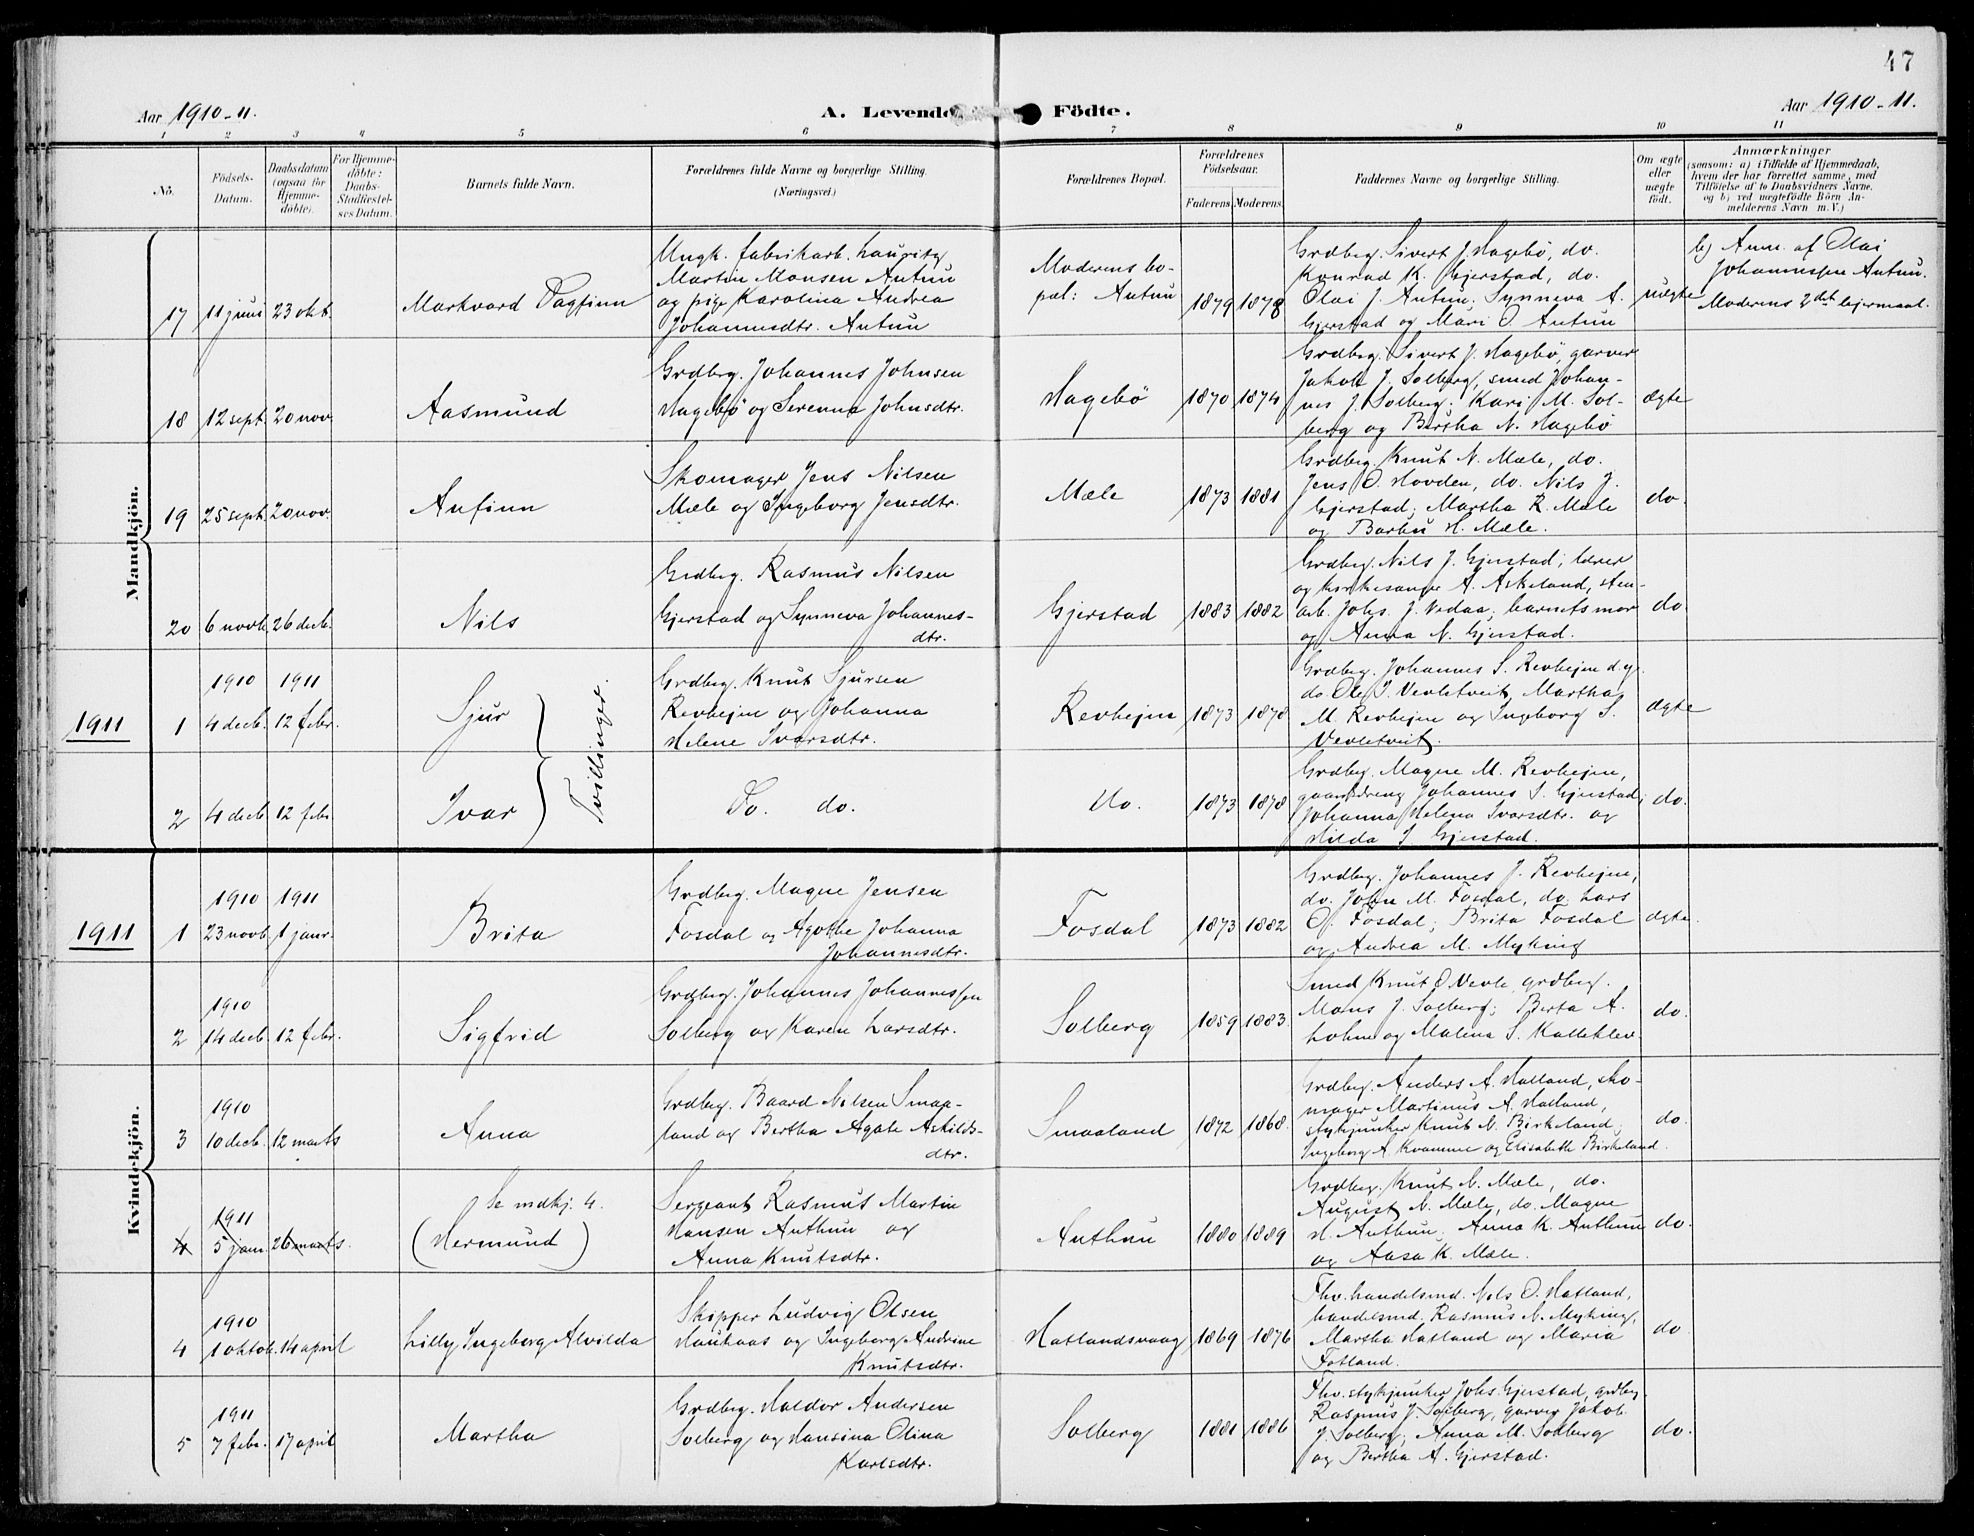 47
Aar 1910-11.
A. Levende Födte.
Aar 1910-11.
1 2 3 4 5 6 7 8 9 10 11
No.
Födsels-
Datum.
Daabsdatum
(ogsaa for
Hjemme-
döbte).
For Hjemme-
döbte:
Daabs-
Stadfæstel-
ses Datum.
Barnets fulde Navn.
Forældrenes fulde Navne og borgerlige Stilling.
(Næringsvei.)
Forældrenes Bopæl.
Forældrenes
Födselsaar.
Faderens. Moderens.
Faddernes Navne og borgerlige Stilling.
Om ægte
eller
uægte
födt.
Anmærkninger
(saasom: a) i Tilfælde af Hjemmedaab,
hvem der har forrettet samme, med
Tilföielse af to Daabsvidners Navne,
og b) ved uægtefödte Börn An-
melderens Navn m. V.)
Mandkjön.
17 11 juni 23 okt. Markvard Dagfinn
Ungk. fabrikarb. Lauritz
Martin Monsen Antun
og pige Karolina Andrea
Johannesdtr. Antun
Moderens bo-
pæl: Antun
1879 1878
Grdbrg. Sivert J. Hagebö, do.
Konrad K. Gjerstad, do.
Olai J. Antun; Synneva A.
Gjerstad og Mari O. Antun
uægte
b) Anm. af Olai
Johannessen Antun.
Moderens 2det lejermaal.
18 12 sept. 20 nov. Aasmund
Grdbrg. Johannes Johnsen
Hagebö og Serenna Johnsdtr.
Hagebö 1870 1874
Grdbrg. Sivert J. Hagebö, garver
Jakob J. Solberg, smed Johan-
nes J. Solberg; Kari M. Sol-
berg og Bertha N. Hagebö
ægte
19 25 sept. 20 nov. Anfinn
Skomager Jens Nilsen
Mæle og Ingeborg Jensdtr.
Mæle 1873 1881
Grdbrg. Knut N. Mæle, do.
Jens O. Hovden, do. Nils J.
Gjerstad; Martha R. Mæle
og Barbu H. Mæle.
do.
20 6 novb. 26 decb. Nils
Grdbrg. Rasmus Nilsen
Gjerstad og Synneva Johannes-
dtr.
Gjerstad 1883 1882
Grdbrg. Nils J. Gjerstad; lærer
og kirkesanger A. Askeland, sten-
arb. Johs. J. Vedaa; barnets mor
og Anna N. Gjerstad.
do.
1911
1910 1911
1 4 decb. 12 febr. Sjur
Tvillinger.
Grdbrg. Knut Sjursen
Revhejm og Johanna
Helene Ivarsdtr.
Revhejm 1873 1878
Grdbrg. Johannes S. Revhejm d.y.
do. Ole I. Vevletveit, Martha
M. Revhejm og Ingeborg S.
Vevletveit.
ægte
2 4 decb. 12 febr. Ivar
Do. do.
Do. 1873 1878
Grdbrg. Magne M. Revhejm,
gaardsdreng Johannes S. Gjerstad;
Johanna Helena Ivarsdtr. og
Hilda J. Gjerstad.
do.
Kvindekjön.
1911
1910 1911
1 23 novb. 1 janr. Brita
Grdbrg. Magne Jensen
Fosdal og Agothe Johanna
Johannesdtr.
Fosdal 1873 1882
Grdbrg. Johannes J. Revhejm,
do. John M. Fosdal, do. Lars
O. Fosdal; Brita Fosdal
og Andrea M. Myking
ægte.
1910
2 14 decb. 12 febr. Sigfrid
Grdbrg. Johannes Johannessen
Solberg og Karen Larsdtr.
Solberg 1859 1883
Smed Knut O. Vevle, grdbrg.
Mons J. Solberg; Berta A.
Lohne og Malena S. Kalleklev
do.
1910
3 10 decb. 12 marts Anna
Grdbrg. Baard Nilsen Smaa-
land og Bertha Agate Askilds-
dtr.
Smaaland 1872 1868
Grdbrg. Anders A. Hatland, sko-
mager Martinus A. Hatland,
stykjunker Knut N. Birkeland;
Ingeborg A. Kvamme og Elisabeth Birkeland.
do.
1911
4 5 jan. 26 marts.
Se mdkj. 4.
(Hermund)
Sergeant Rasmus Martin
Hansen Anthun og
Anna Knutsdtr.
Anthun 1880 1889
Grdbrg. Knut N. Mæle, do.
August N. Mæle, do. Magne
H. Anthun; Anna K. Anthun
og Aasa K. Mæle.
do.
1910
4 1 oktob. 14 april Lilly Ingeborg Alvilda
Skipper Ludvig Olsen
Haukaas og Ingeborg Andrine
Knutsdtr.
Hatlandsvaag 1869 1876
Fhv. handelsmd. Nils O. Hatland,
handelsmd. Rasmus N. Myking,
Martha Hatland og Maria
Fotland.
do.
1911
5 7 febr. 17 april Martha
Grdbrg. Haldor Andersen
Solberg og Hansina Olina
Karlsdtr.
Solberg 1881 1886
Fhv. stykjunker Johs. Gjerstad, grdbrg.
Rasmus J. Solberg, garver Jakob
J. Solberg; Anna M. Solberg
og Bertha A. Gjerstad.
do.